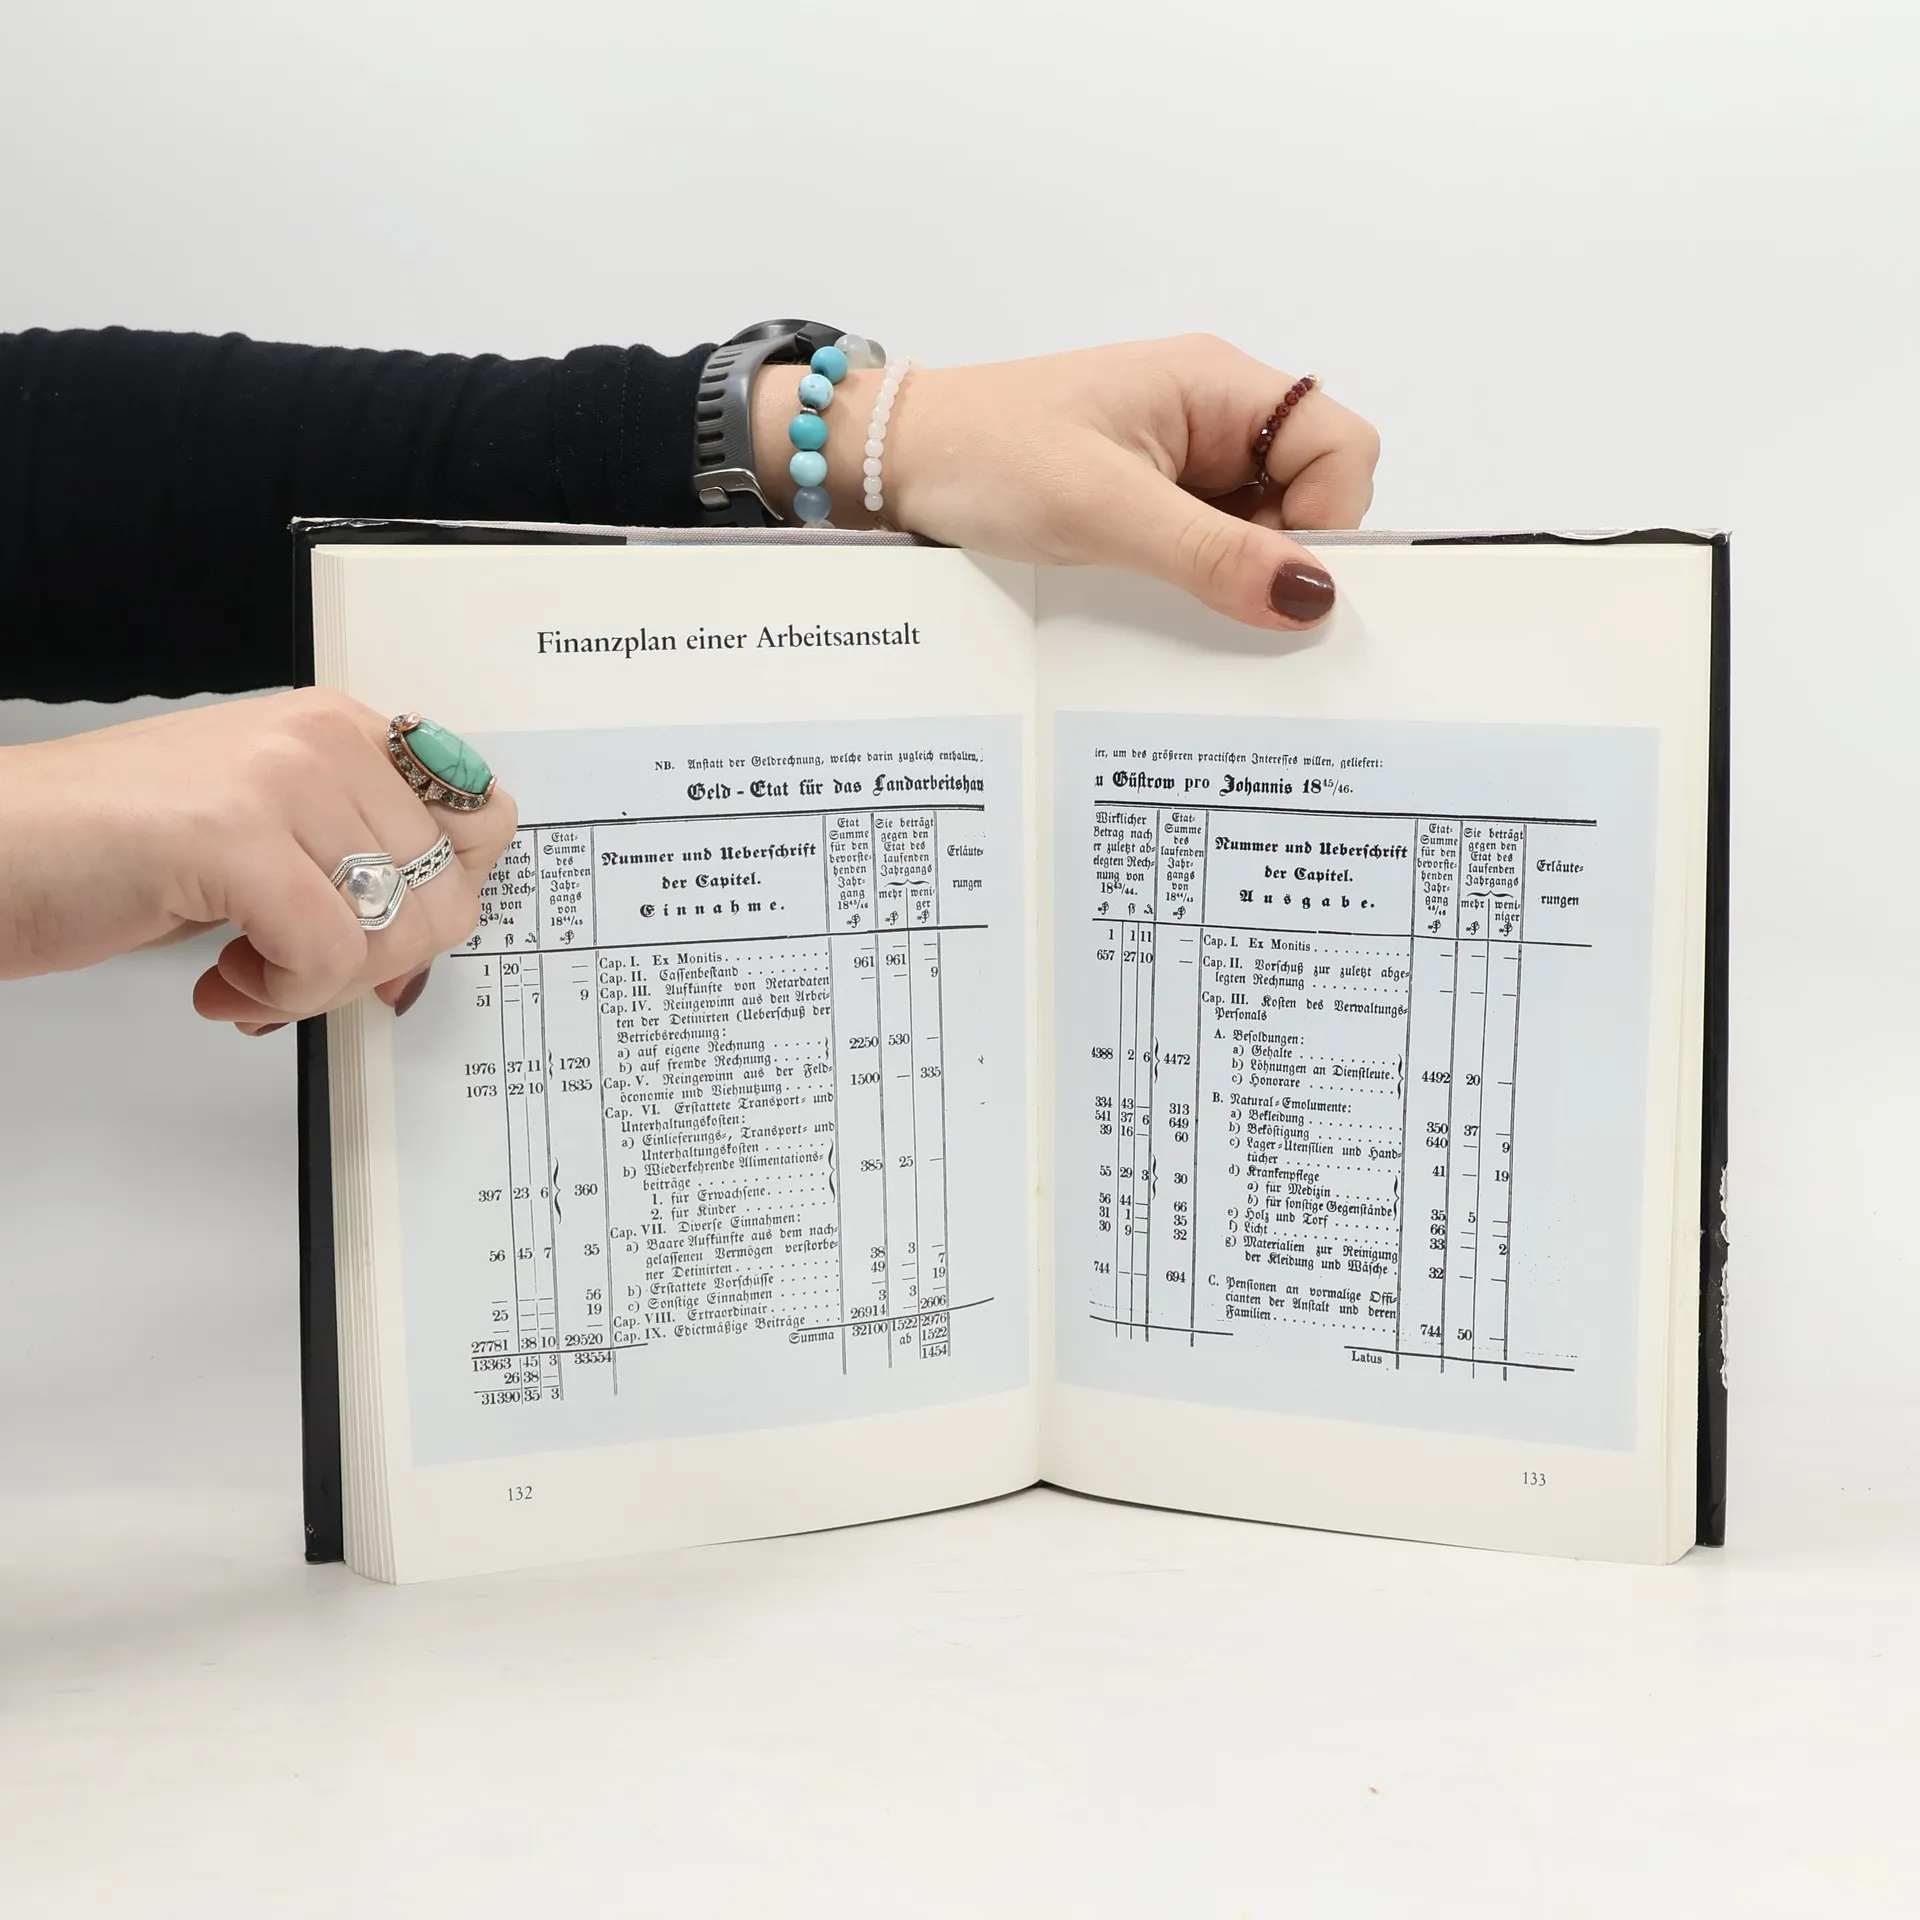 Finanzplan einer Arbeitsanstalt
NB. Anstatt der Geldrechnung, welche darin zugleich enthalten,
Geld-Etat für das Landarbeitshau
her
nach
letzt ab=
ten Rech=
ng von
1843/44
Etat=
Summe
des
laufenden
Jahr=
gangs
von
1844/45
Nummer und Ueberschrift
der Capitel.
Einnahme.
Etat
Summe
für den
bevorste=
henden
Jahr=
gang
1845/46
Sie beträgt
gegen den
Etat des
laufenden
Jahrgangs
mehr weni=
ger
Erläute=
rungen
— Cap. I. Ex Monitis . . . — — —
1 20 — — Cap. II. Cassenbestand . . . 961 961 —
51 — 7 9 Cap. III. Aufkünfte von Retardaten — — 9
Cap. IV. Reingewinn aus den Arbei=
ten der Detinirten (Ueberschuß der
Betriebsrechnung:
a) auf eigene Rechnung . . . . .
1976 37 11 1720 b) auf fremde Rechnung . . . . . 2250 530 —
1073 22 10 1835 Cap. V. Reingewinn aus der Feld=
öconomie und Viehnutzung . . . . . 1500 — 335
Cap. VI. Erstattete Transport= und
Unterhaltungskosten:
a) Einlieferungs=, Transport= und
Unterhaltungskosten . . . . .
b) Wiederkehrende Alimentations=
beiträge
397 23 6 360 1. für Erwachsene . . . . . 385 25 —
2. für Kinder . . . . .
Cap. VII. Diverse Einnahmen:
56 45 7 35 a) Baare Aufkünfte aus dem nach=
gelassenen Vermögen verstorbe=
ner Detinirten . . . . . 38 3 —
— — — 56 b) Erstattete Vorschüsse . . . . . 49 — 7
25 — — 19 c) Sonstige Einnahmen . . . . . — — 19
— — Cap. VIII. Extraordinair . . . . . 3 3 —
27781 38 10 29520 Cap. IX. Edictmäßige Beiträge . . . 26914 — 2606
13363 45 3 33554 Summa 32100 1522 2976
26 38 — ab 1522
31390 35 3 1454
132
ier, um des größeren practischen Interesses willen, geliefert:
u Güstrow pro Johannis 1845/46.
Wirklicher
Betrag nach
er zuletzt ab=
elegten Rech=
nung von
1843/44.
Etat=
Summe
des
laufenden
Jahr=
gangs
von
1844/45
Nummer und Ueberschrift
der Capitel.
Ausgabe.
Etat=
Summe
für den
bevorste=
henden
Jahr=
gang
45/46
Sie beträgt
gegen den
Etat des
laufenden
Jahrgangs
mehr weni=
niger
Erläute=
rungen
1 1 11 — Cap. I. Ex Monitis . . . . . — — —
657 27 10 — Cap. II. Vorschuß zur zuletzt abge=
legten Rechnung . . . . . — — —
Cap. III. Kosten des Verwaltungs=
Personals
A. Besoldungen:
a) Gehalte . . . . .
4388 2 6 4472 b) Löhnungen an Dienstleute. 4492 20 —
c) Honorare . . . . .
B. Natural=Emolumente:
334 43 — 313 a) Bekleidung . . . . . 350 37 —
541 37 6 649 b) Beköstigung . . . . . 640 — 9
39 16 — 60 c) Lager=Utensilien und Hand=
tücher . . . . . 41 — 19
d) Krankenpflege
55 29 3 30 a) für Medizin . . . . .
b) für sonstige Gegenstände 35 5 —
56 44 — 66 e) Holz und Torf . . . . . 66 — —
31 1 — 35 f) Licht . . . . . 33 — 2
30 9 — 32 g) Materialien zur Reinigung
der Kleidung und Wäsche . 32 — —
744 — — 694 C. Pensionen an vormalige Offi=
cianten der Anstalt und deren
Familien . . . . . 744 50 —
Latus
133